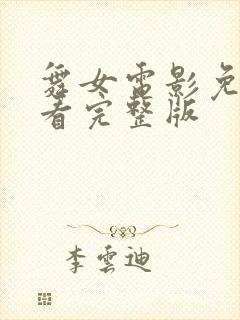 舞女電影免
看完整版
李雲迪